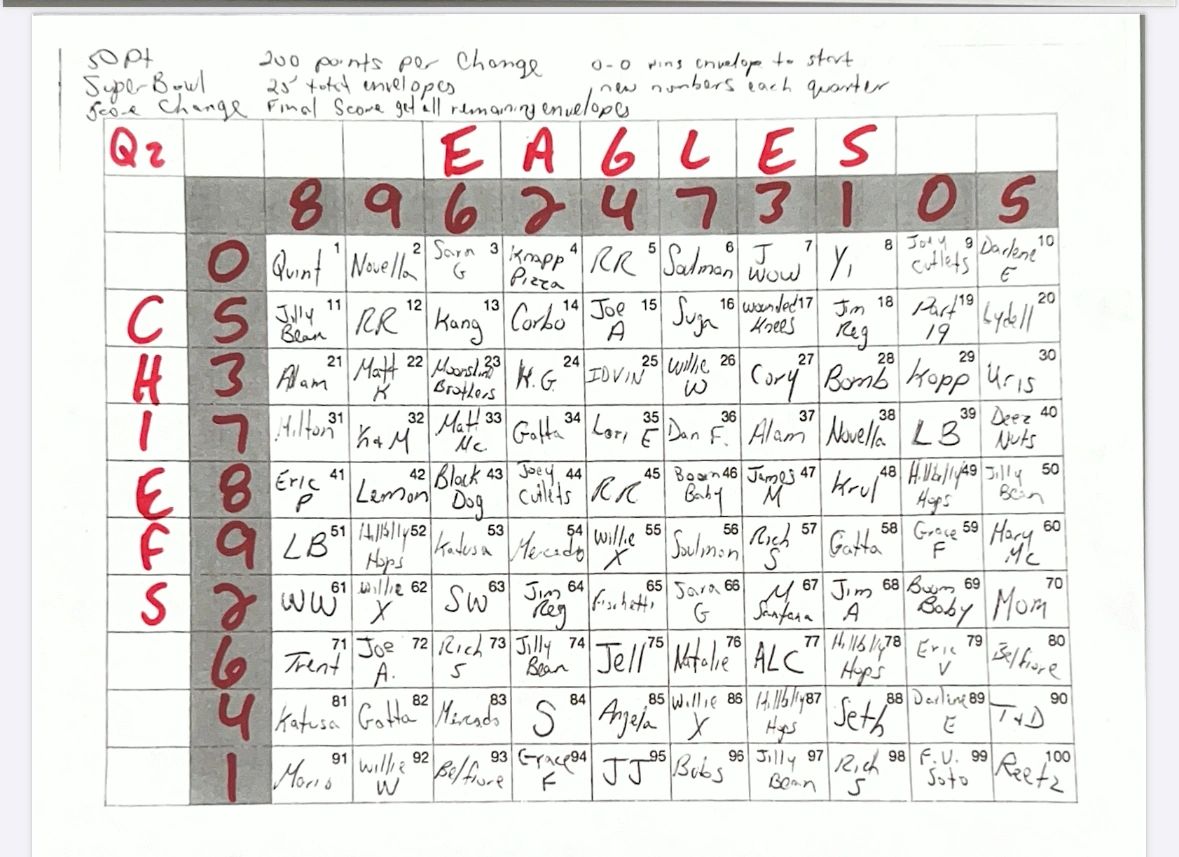 50 Pt 200 points per Change 0-0 wins envelope to start
SuperBowl 25 total envelopes new numbers each quarter
Score Change Final Score get all remaining envelopes
Q2 E A G L E S
8 9 6 2 4 7 3 1 0 5
0 Quint 1 Novella 2 Sara G 3 Knapp Pizza 4 RR 5 Salmon 6 J WOW 7 Y, 8 Joey Cutlets 9 Darlene E 10
C 5 Jilly Bean 11 RR 12 Kang 13 Corbo 14 Joe A 15 Suga 16 Wounded Knees 17 Jim Reg 18 Part 19 19 Lydell 20
H 3 Alam 21 Matt K 22 Moonshine Brothers 23 K.G. 24 IDVIN 25 Willie W 26 Cory 27 Bomb 28 Kopp 29 Uris 30
I 7 Hilton 31 K+M 32 Matt Mc. 33 Gatta 34 Lori E 35 Dan F. 36 Alam 37 Novella 38 LB 39 Deez Nuts 40
E 8 Eric P 41 Lemon 42 Black Dog 43 Joey Cutlets 44 RR 45 Boom Baby 46 James M 47 Krul 48 Hillbilly Hops 49 Jilly Bean 50
F 9 LB 51 Hillbilly Hops 52 Katusa 53 Mercado 54 Willie X 55 Salmon 56 Rich S 57 Gatta 58 Grace F 59 Mary Mc 60
S 2 WW 61 Willie X 62 SW 63 Jim Reg 64 Fischetti 65 Sara G 66 M Santana 67 Jim A 68 Boom Baby 69 Mom 70
6 Trent 71 Joe A. 72 Rich S 73 Jilly Bean 74 Jell 75 Natalie 76 ALC 77 Hillbilly Hops 78 Eric V 79 Belfiore 80
4 Katusa 81 Gatta 82 Mercado 83 S 84 Angela 85 Willie X 86 Hillbilly Hops 87 Seth 88 Darlene E 89 T+D 90
1 Mario 91 Willie W 92 Belfiore 93 Grace F 94 JJ 95 Bobs 96 Jilly Bean 97 Rich S 98 F.U. Soto 99 Reetz 100